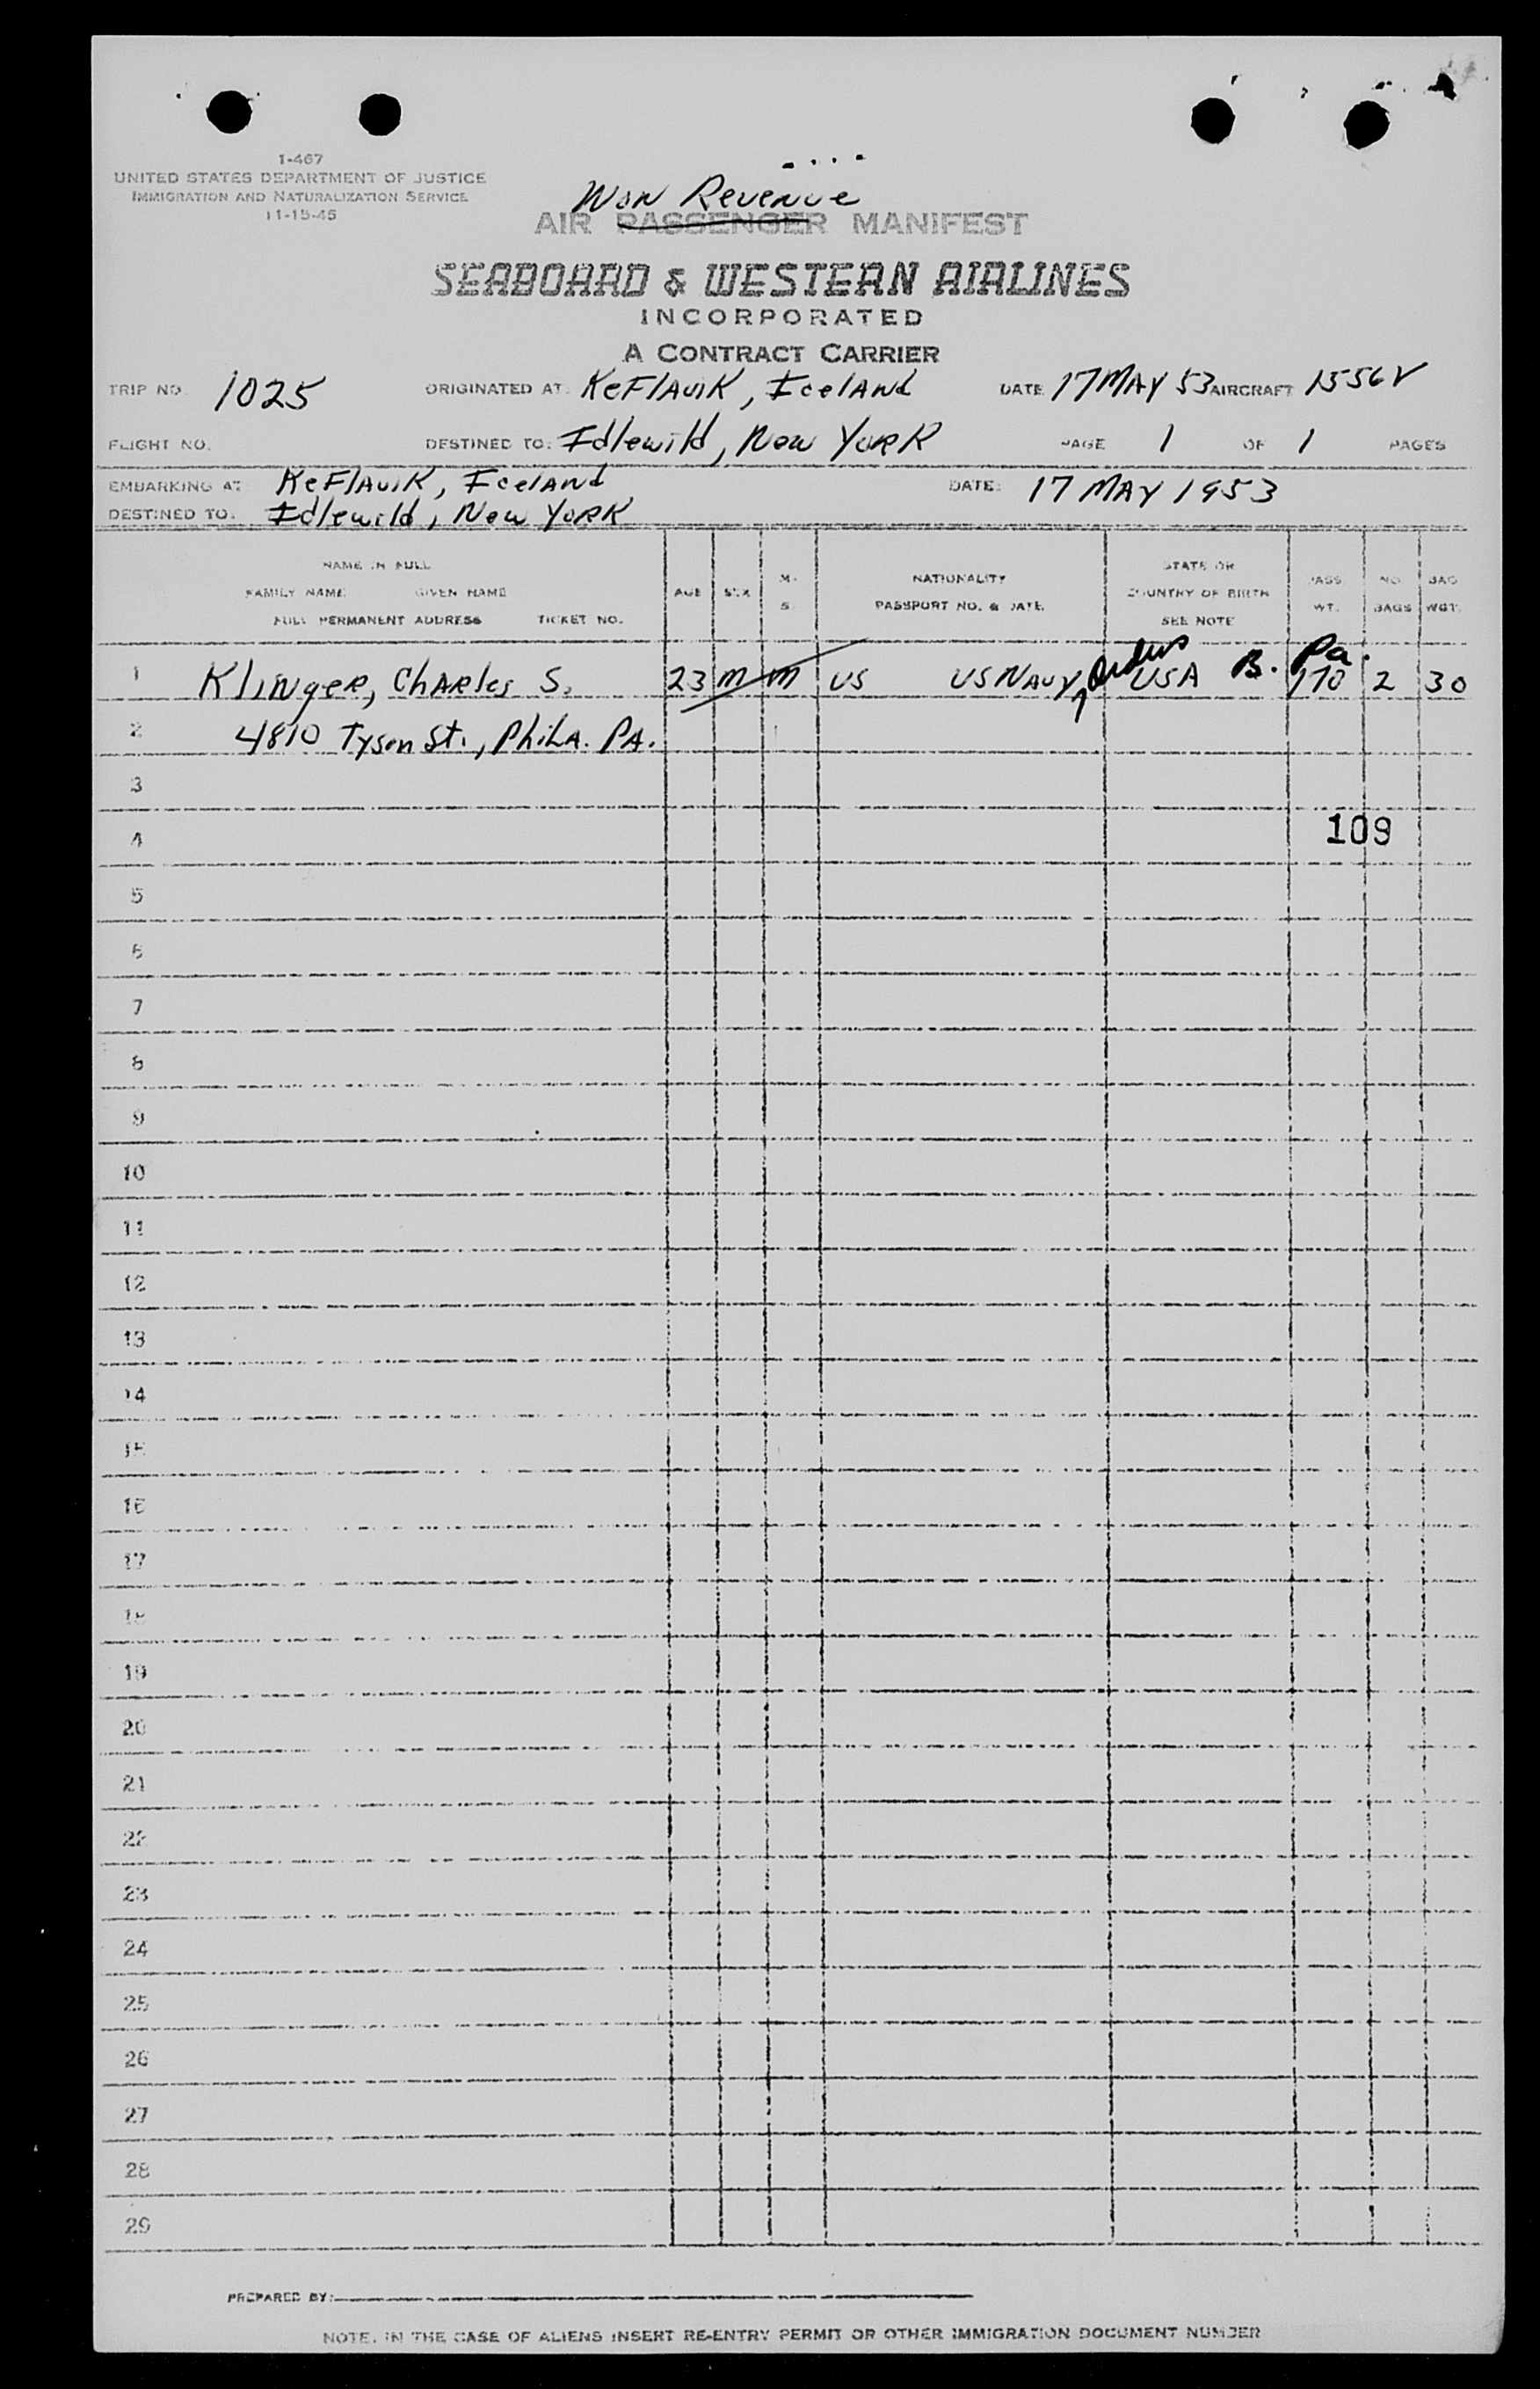 1-467
UNITED STATES DEPARTMENT OF JUSTICE
IMMIGRATION AND NATURALIZATION SERVICE
11-15-45
Non Revenue
AIR PASSENGER MANIFEST
SEABOARD & WESTERN AIRLINES
INCORPORATED
A CONTRACT CARRIER
TRIP NO. 1025 ORIGINATED AT: KeFlAviK, IcelANd DATE 17 MAY 53 AIRCRAFT 1556V
FLIGHT NO. DESTINED TO: Idlewild, New YORK PAGE 1 OF 1 PAGES
EMBARKING AT KeFlAviK, IcelANd DATE: 17 MAY 1953
DESTINED TO. Idlewild, New YORK
NAME IN FULL
FAMILY NAME GIVEN NAME
FULL PERMANENT ADDRESS TICKET NO.
AGE SEX M. S.
NATIONALITY
PASSPORT NO. & DATE
STATE OR
COUNTRY OF BIRTH
SEE NOTE
PASS WT. NO. BAGS BAG WGT.
1 KliNgeR, ChARles S. 23 M M US US NAvy Orders USA B. Pa. 170 2 30
2 4810 Tyson St., PhiLA. PA.
3
4 109
5
6
7
8
9
10
11
12
13
14
15
16
17
18
19
20
21
22
23
24
25
26
27
28
29
PREPARED BY:
NOTE. IN THE CASE OF ALIENS INSERT RE-ENTRY PERMIT OR OTHER IMMIGRATION DOCUMENT NUMBER